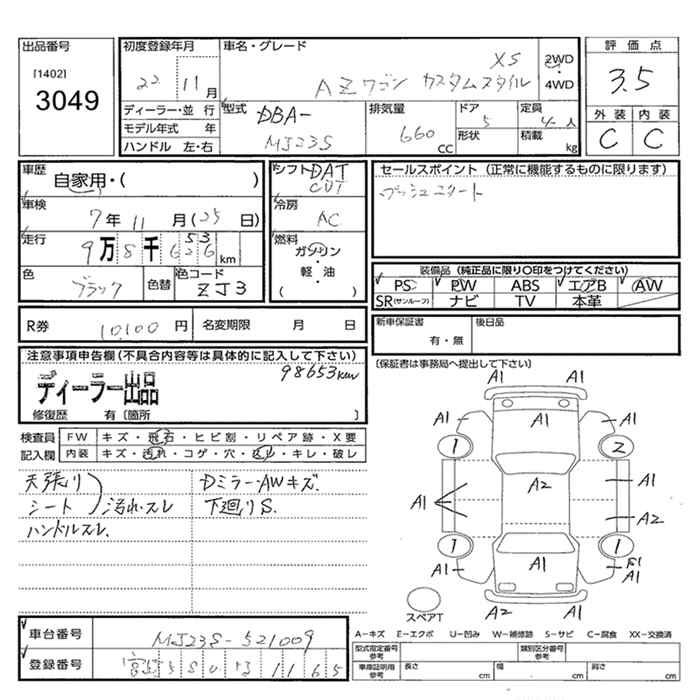 出品番号
[1402]
3049
初度登録年月
22 11月
車名・グレード
XS
AZワゴン カスタムスタイル
2WD
4WD
評価点
3.5
外装 内装
C C
ディーラー・並 行
モデル年式 年
ハンドル 左・右
型式
DBA-
MJ23S
排気量
660
CC
ドア
5
形状
定員
4人
積載
kg
車歴
自家用・( )
シフト DAT
CVT
セールスポイント (正常に機能するものに限ります)
プッシュスタート
車検
7年 11月 (25日)
冷房
AC
走行
9万8千626km
53
燃料
ガソリン
軽・油
( )
色
ブラック
色替
色コード
ZJ3
装備品 (純正品に限り○印をつけてください)
PS PW ABS エアB AW
SR(サンルーフ) ナビ TV 本革
R券
10,100 円
名変期限 月 日
新車保証書
有・無
後日品
(保証書は事務局へ提出して下さい)
注意事項申告欄(不具合内容等は具体的に記入して下さい)
98653km
ディーラー出品
修復歴 有〔箇所 〕
検査員
記入欄
FW キズ・飛石・ヒビ割・リペア跡・X要
内装 キズ・汚れ・コゲ・穴・スレ・キレ・破レ
天張り
シート 汚れ・スレ
ハンドルスレ.
DミラーAWキズ.
下廻りS.
A1
A1 A1 A1
1 2
A1
A2
A1
A2
1 1
A1 A1 A1
A2 A1
スペアT
A-キズ E-エクボ U-凹み W-補修跡 S-サビ C-腐食 XX-交換済
車台番号
MJ23S-521009
登録番号
型式指定番号
参考
類別区分番号
参考
車庫証明用
参考
長さ cm
幅 cm
高さ cm